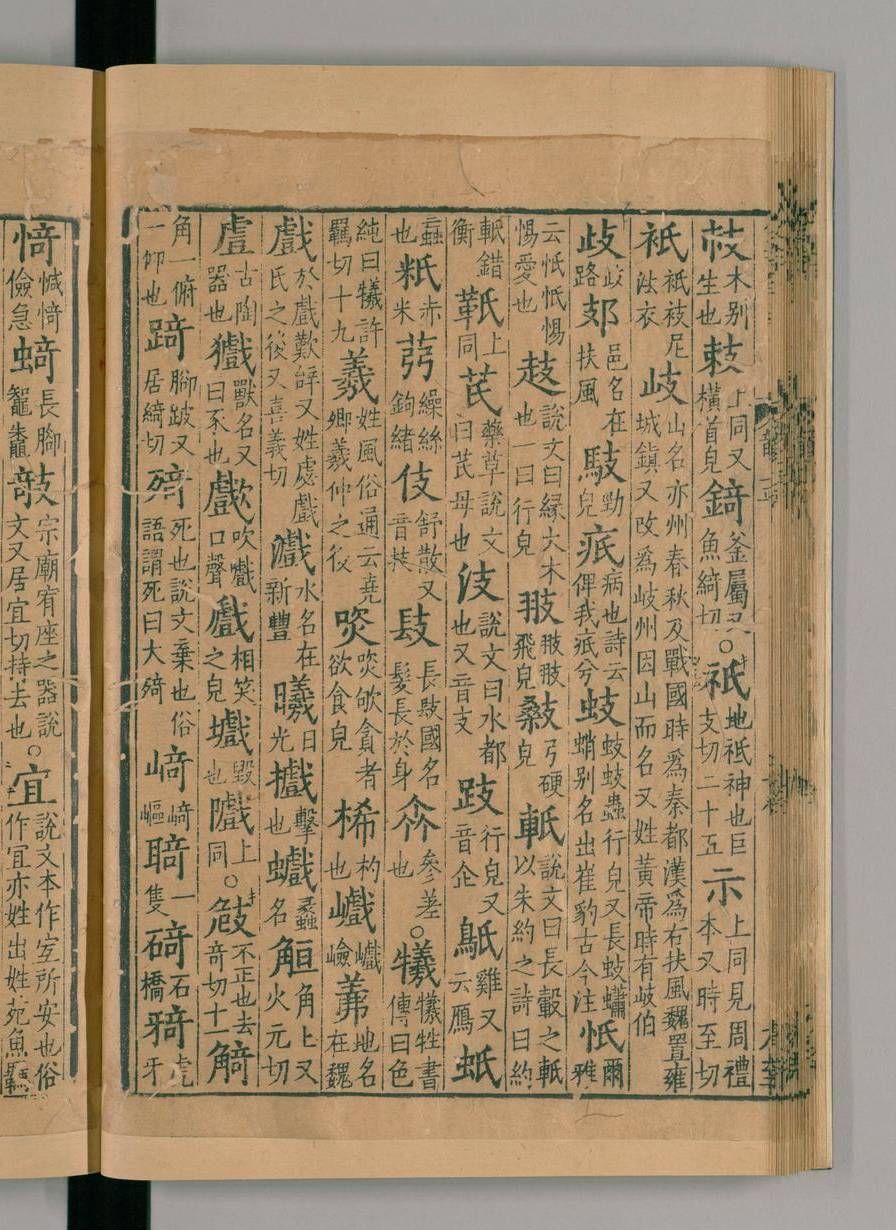 㩻木别生也攲上同又橫首皃錡釜屬又魚綺切○祇地祇神也巨支切二十五示上同見周禮本又時至切
衹衹衼尼法衣岐山名亦州春秋及戰國時爲秦都漢爲右扶風魏置雍城鎮又改爲岐州因山而名又姓黃帝時有岐伯
歧歧路郂邑名在扶風䮃勁皃疧病也詩云俾我疧兮蚑蚑蚑蟲行皃又長蚑蠨蛸别名出崔豹古今注忯爾雅
云忯忯惕惕愛也䞚說文曰緣大木也一曰行皃翄翄翄飛皃弓硬皃軝說文曰長轂之軝以朱約之詩曰約
軝錯衡䡋上同芪藥草說文曰芪母也汥說文曰水都也又音支跂行皃又音企鳷雞又云鴈蚔
蟲也𥹁赤米䓔繰絲鉤緒伎舒散又音技镻長镻國名髮長於身㐱參差也○犧犧牲書傳曰色
純曰犧許羈切十九羲姓風俗通云堯卿羲仲之後㗨㗨㰟貪者欲食皃桸杓也巇巇嶮䕒地名在魏
戲於戲歎辝又姓虙戲氏之後又喜義切㵘水名在新豐曦日光㩅擊也蠘蠡名觛角匕又火元切
䖒古陶器也㺣獸名又曰豕也㰕吹㰕口聲𢋅相笑之皃㙤毀也隵上同○㩻不正也去奇切十一觭
角一俯一仰也踦腳跛又居綺切㱦死也說文棄也俗語謂死曰大㱦崎崎嶇䀈一隻碕石橋㸦虎牙
㥓㥓㥓儉急䗁長腳鼅鼄攲宗廟宥座之器說文又居宜切持去也○宜說文本作宐所安也俗作宜亦姓出姓苑魚羈